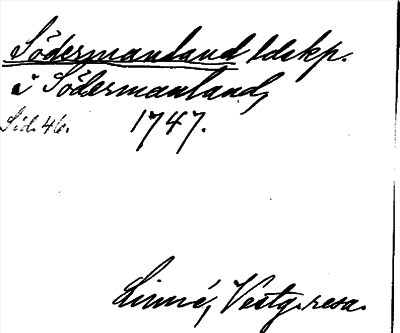 Södermanland ldskp.
i Södermanland,
Sid. 46. 1747.
Linné, Vestg. resa.